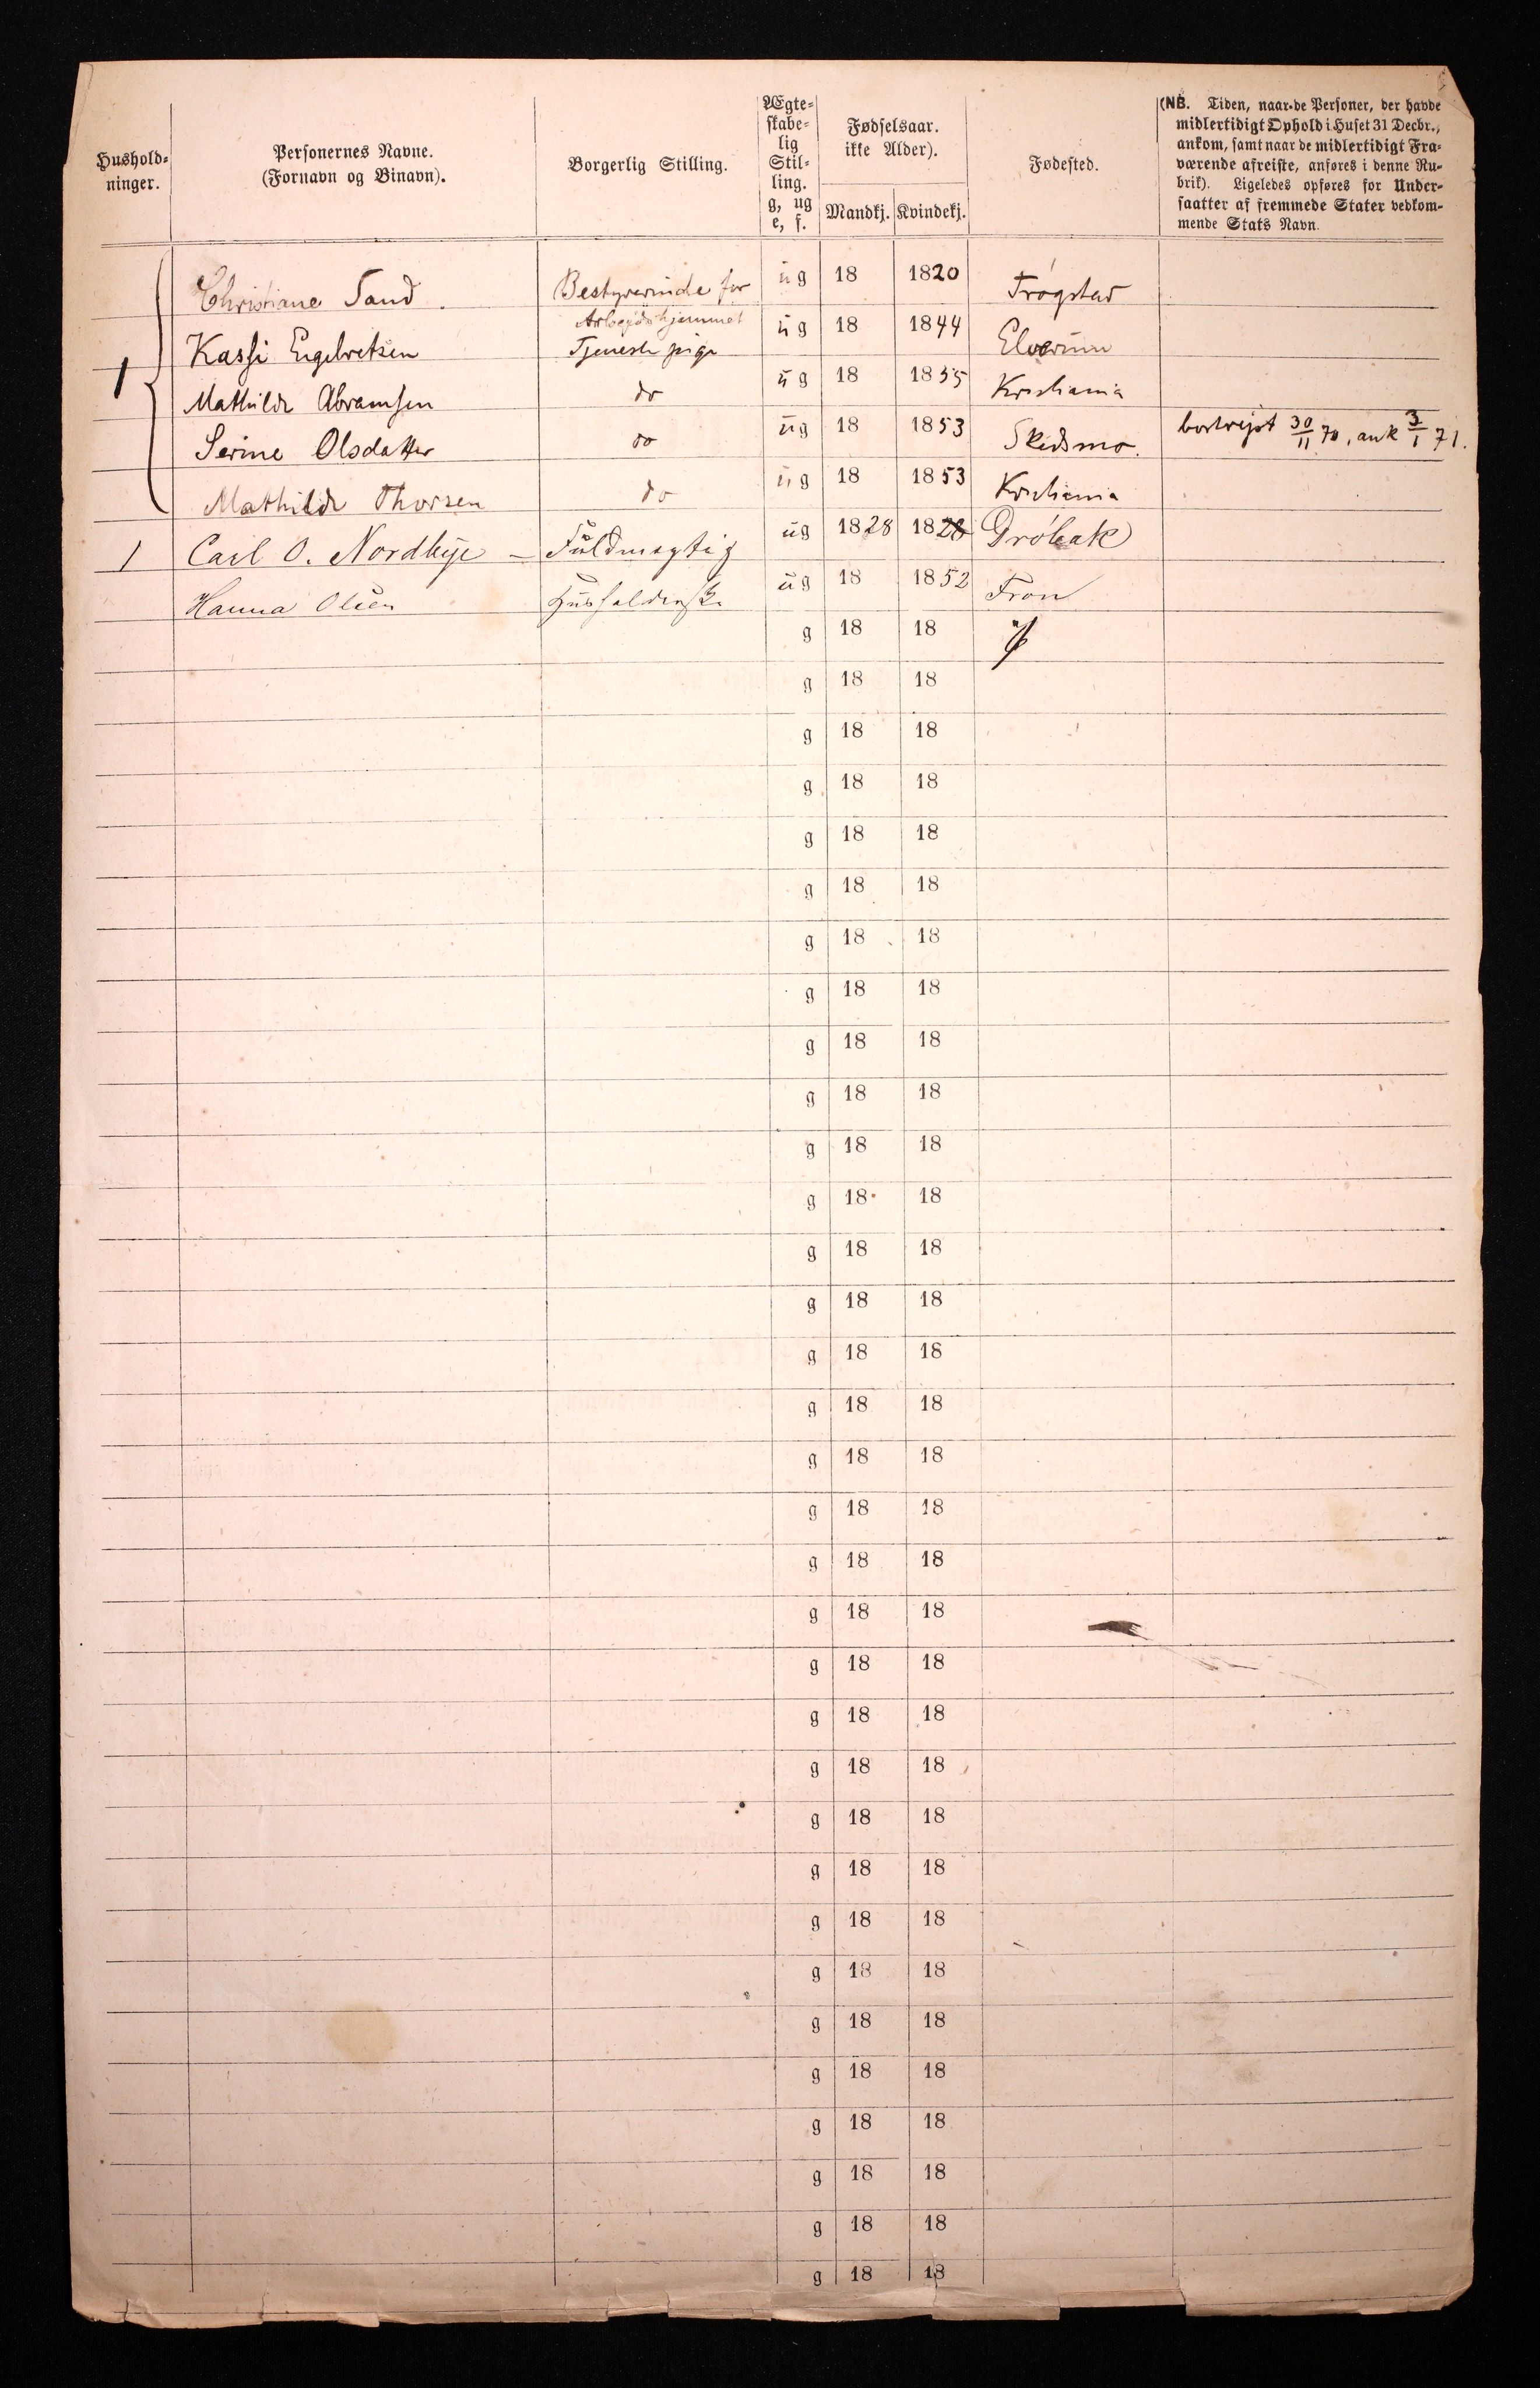 Hushold-
ninger.
Personernes Navne.
(Fornavn og Binavn).
Borgerlig Stilling.
Ægte-
skabe-
lig
Stil-
ling.
g, ug
e, f.
Fødselsaar.
ikke Alder).
Mandkj. Kvindekj.
Fødested.
(NB. Tiden, naar de Personer, der havde
midlertidigt Ophold i Huset 31 Decbr.,
ankom, samt naar de midlertidigt Fra-
værende afreiste, anføres i denne Ru-
brik). Ligeledes opføres for Under-
saatter af fremmede Stater vedkom-
mende Stats Navn.
1 Christiane Sand. Bestyrerinde for Arbejdshjemmet ug 18 1820 Trøgstad
Kassi Engebretsen Tjenestepige ug 18 1844 Elverum
Mathilde Abramsen do ug 18 1855 Kristiania
Serine Olsdatter do ug 18 1853 Skedsmo. bortrejst 30/11 70, ank 3/1 71.
Mathilde Thorsen do ug 18 1853 Kristiania
1 Carl O. Nordbye – Fuldmægtig ug 1828 1828 Drøbak
Hanna Olsen Husholderske ug 18 1852 Fron
g 18 18
g 18 18
g 18 18
g 18 18
g 18 18
g 18 18
g 18 18
g 18 18
g 18 18
g 18 18
g 18 18
g 18 18
g 18 18
g 18 18
g 18 18
g 18 18
g 18 18
g 18 18
g 18 18
g 18 18
g 18 18
g 18 18
g 18 18
g 18 18
g 18 18
g 18 18
g 18 18
g 18 18
g 18 18
g 18 18
g 18 18
g 18 18
g 18 18